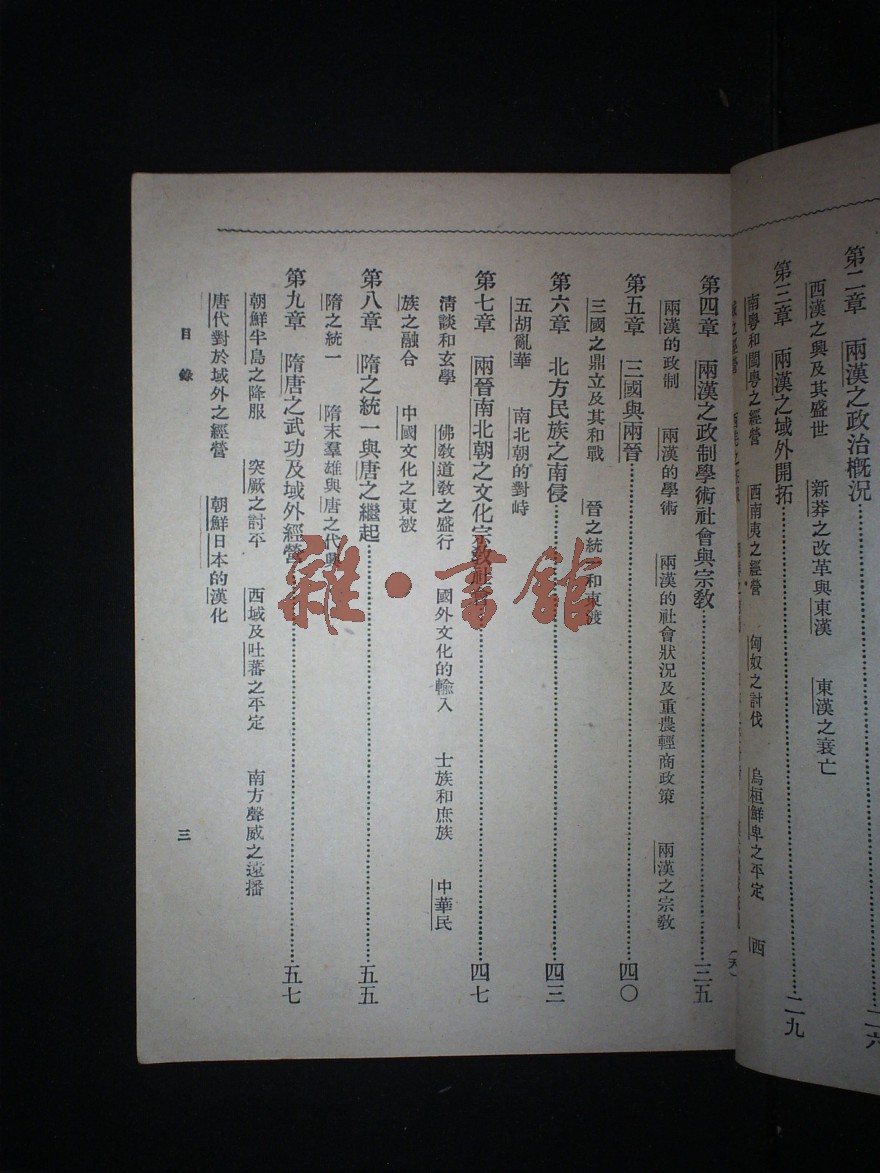 第二章　兩漢之政治概況…………二六
西漢之興及其盛世　新莽之改革與東漢　東漢之衰亡
第三章　兩漢之域外開拓…………二九
南粵和閩粵之經營　西南夷之經營　匈奴之討伐　烏桓鮮卑之平定　西
第四章　兩漢之政制學術社會與宗教…………三五
兩漢的政制　兩漢的學術　兩漢的社會狀況及重農輕商政策　兩漢之宗教
第五章　三國與兩晉…………四〇
三國之鼎立及其和戰　晉之統一和東渡
第六章　北方民族之南侵…………四三
五胡亂華　南北朝的對峙
第七章　兩晉南北朝之文化宗教社會…………四七
清談和玄學　佛教道教之盛行　國外文化的輸入　士族和庶族　中華民
族之融合　中國文化之東被
第八章　隋之統一與唐之繼起…………五五
隋之統一　隋末羣雄與唐之代興
第九章　隋唐之武功及域外經營…………五七
朝鮮半島之降服　突厥之討平　西域及吐蕃之平定　南方聲威之遠播
唐代對於域外之經營　朝鮮日本的漢化
目錄
三
雜·書館